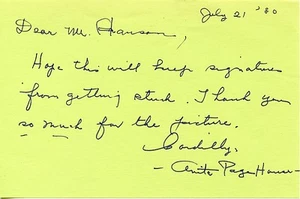 July 21 '80
Dear Mr. Hanson,
Hope this will keep signature
from getting stuck. Thank you
so much for the picture.
Cordially,
- Anita Page House -